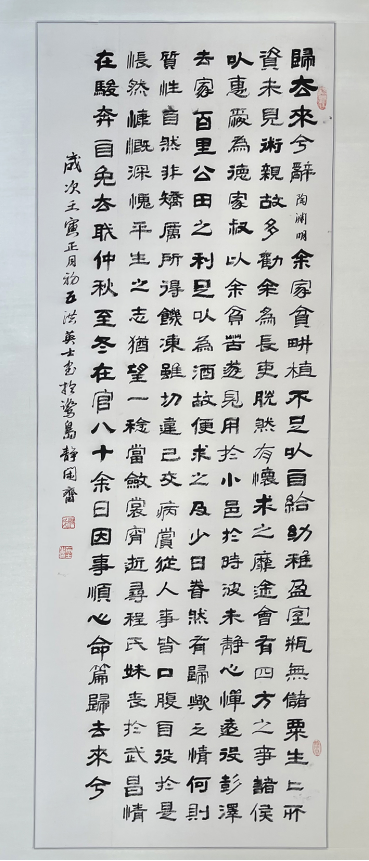 歸去來兮辭 陶淵明 余家貧畊植不足以自給幼稚盈室瓶無儲粟生生所
資未見術親故多勸余為長吏脫然有懷求之靡途會有四方之事諸侯
以惠愛為德家叔以余貧苦遂見用於小邑於時波未靜心憚遠役彭澤
去家百里公田之利足以為酒故便求之及少日眷然有歸歟之情何則
質性自然非矯厲所得饑凍雖切違己交病賞從人事皆口腹自役於是
悵然慷慨深愧平生之志猶望一稔當斂裳宵逝尋程氏妹喪於武昌情
在駿奔自免去職仲秋至冬在官八十余日因事順心命篇歸去來兮
歲次壬寅正月初五洪英士書於鷺島靜閑齋